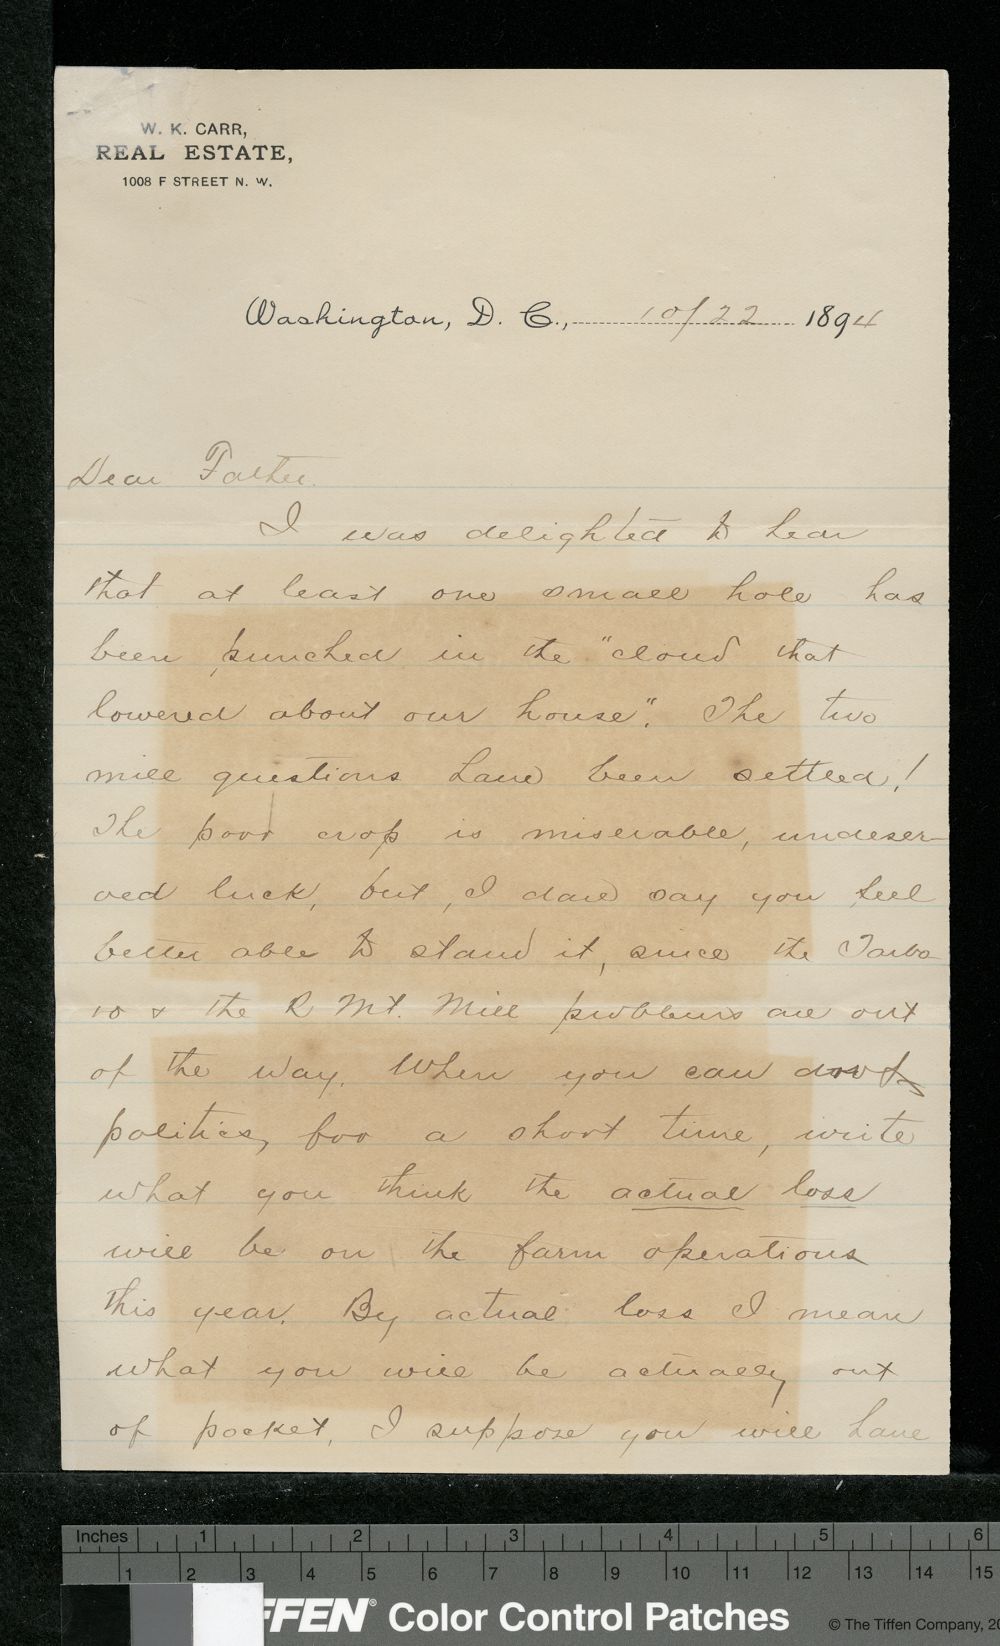 W. K. CARR,
REAL ESTATE,
1008 F STREET N. W.
Washington, D. C., 10/22 1894
Dear Father.
I was delighted to hear
that at least one small hole has
been punched in the "cloud that
lowered about our house". The two
mill questions have been settled!
The poor crop is miserable, undeser-
ved luck, but, I dare say you feel
better able to stand it, since the Tarbo
ro & the R Mt. Mill problems are out
of the way. When you can
politics, for a short time, write
what you think the actual loss
will be on the farm operations
this year. By actual loss I mean
what you will be actually out
of pocket, I suppose you will have
Inches 1 2 3 4 5 6
1 2 3 4 5 6 7 8 9 10 11 12 13 14 15
FFEN® Color Control Patches
© The Tiffen Company, 20